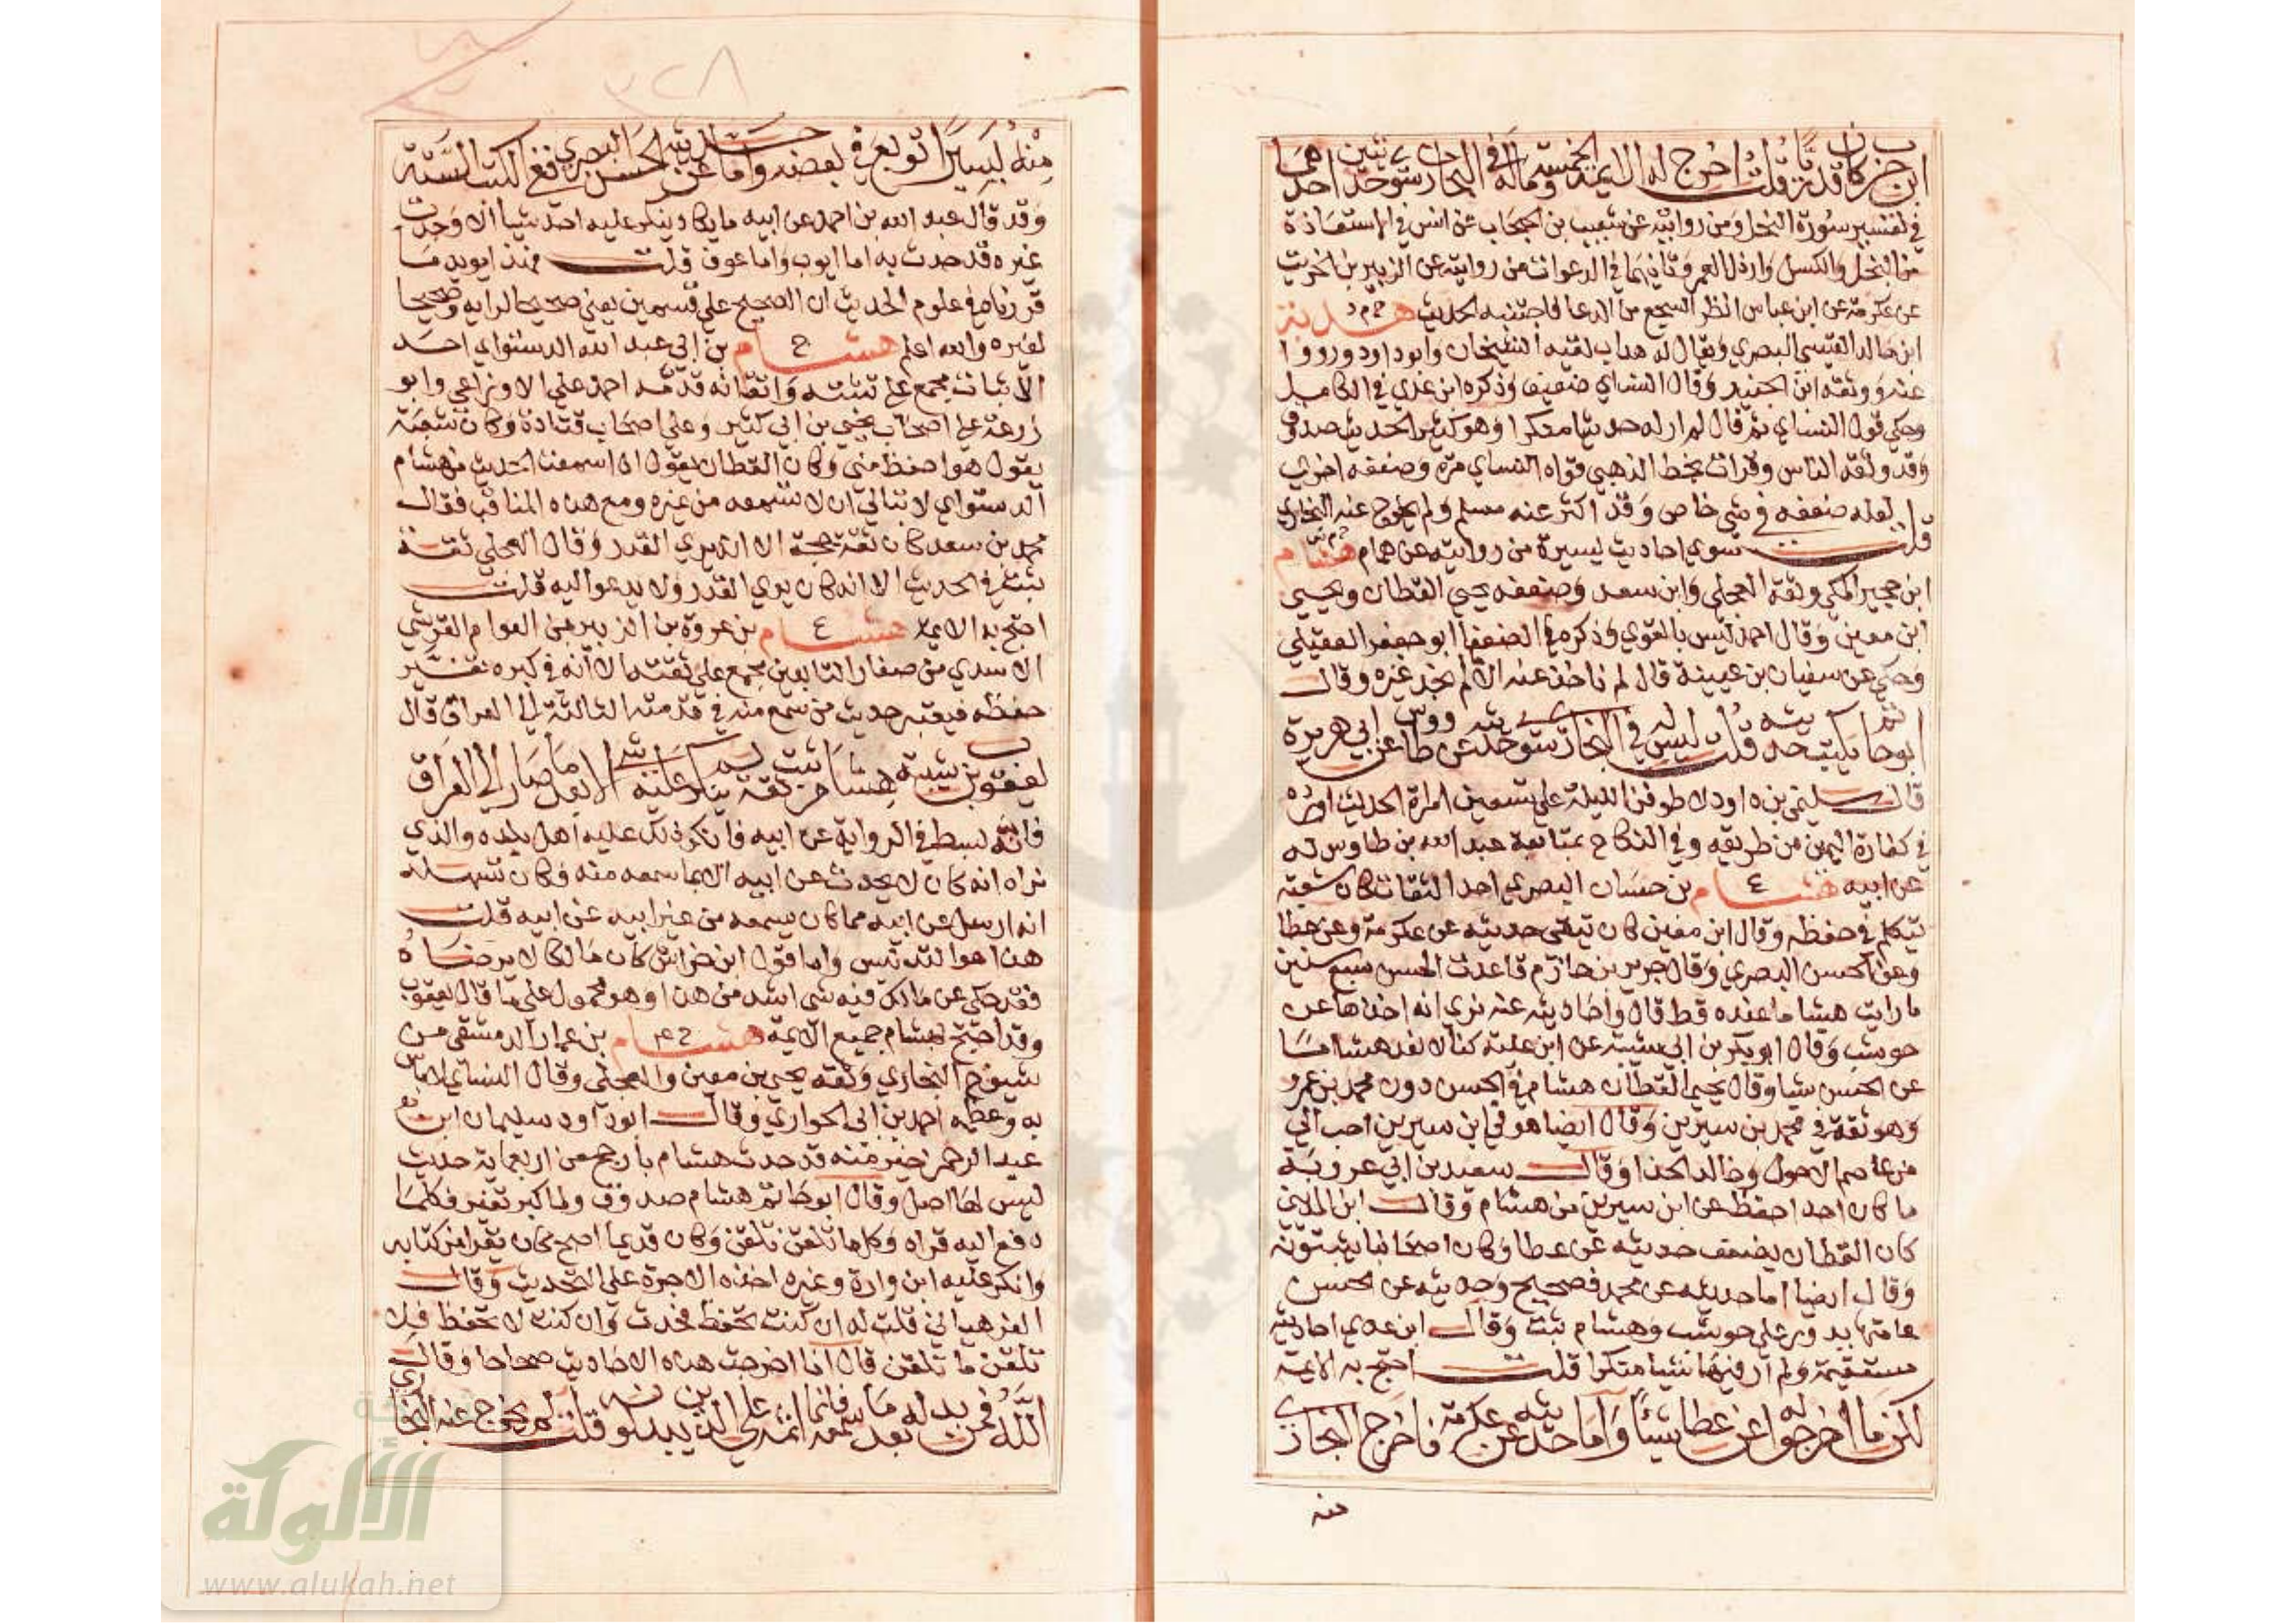 ابن حزم كان قدريا قلت اخرج له الايمة الخمسة وماله في البخاري سوى حديثين احدهما
في تفسير سورة النحل ومن روايته عن شعيب بن الحبحاب عن انس في الاستعاذة
من البخل والكسل وارذل العمر وثانيهما في الدعوات من روايته عن الزبير بن الخريت
عن عكرمة عن ابن عباس انظر السجع من الدعا فاجتنبه الحديث خ م د هدبة
ابن خالد القيسي البصري ويقال له هداب لقيه الشيخان وابو داود ورووا
عنه ووثقه ابن الجنيد وقال النساي ضعيف وذكره ابن عدي في الكامل
وحكى قول النساي ثم قال لم ار له حديثا منكرا وهو كثير الحديث صدوق
وقد وثقه الناس وقرات بخط الذهبي قواه النساي مرة وضعفه اخرى
قلت لعله ضعفه في شي خاص وقد اكثر عنه مسلم ولم يخرج عنه البخاري
سوى احاديث يسيرة من روايته عن همام خ م س هشام
ابن حجير المكي وثقه العجلي وابن سعد وضعفه يحيى القطان ويحيى
ابن معين وقال احمد ليس بالقوي وذكره في الضعفا ابو جعفر العقيلي
وحكى عن سفيان بن عيينة قال لم ناخذ عنه الا ما لم نجد غيره وقال
ابو حاتم يكتب حديثه قلت ليس له في البخاري سوى حديثه عن طاووس عن ابي هريرة
قال سليمن بن داود لاطوفن الليلة على تسعين امراة الحديث اورده
في كفارة اليمين من طريقه وفي النكاح بمتابعة عبد الله بن طاوس له
عن ابيه ع هشام بن حسان البصري احد الثقات كان شعبة
يتكلم في حفظه وقال ابن معين كان يتقى حديثه عن عكرمة وعن عطا
وعن الحسن البصري وقال جرير بن حازم قاعدت الحسن سبع سنين
ما رايت هشاما عنده قط قال واحاديثه عنه نرى انه اخذها عن
حوشب وقال ابو بكر بن ابي شيبة عن ابن علية كنا لا نعد هشاما
عن الحسن شيا وقال يحيى القطان هشام في الحسن دون محمد بن عمرو
وهو ثقة في محمد بن سيرين وقال ايضا هو في ابن سيرين احب الي
من عاصم الاحول وخالد الحذا وقال سعيد بن ابي عروبة
ما كان احد احفظ عن ابن سيرين من هشام وقال ابن المديني
كان القطان يضعف حديثه عن عطا وكان اصحابنا يثبتونه
وقال ايضا اما حديثه عن محمد فصحيح وحديثه عن الحسن
عامتها يدور على حوشب وهشام ثبت وقال ابن عدي احاديثه
مستقيمة ولم ار فيها شيا منكرا قلت احتج به الايمة
لكن ما اخرجوا له عن عطا شيئا واما حديثه عن عكرمة فاخرج البخاري
منه
٣٢٨
منه يسيرا توبع في بعضه واما حديثه عن الحسن البصري ففي الكتب الستة
وقد قال عبد الله بن احمد عن ابيه ما يكاد ينكر عليه احد شيا الا وجدت
غيره قد حدث به اما ايوب واما عوف قلت فهذا يويد ما
قررناه في علوم الحديث ان الصحيح على قسمين يعني صحيحا لذاته وصحيحا
لغيره والله اعلم ع هشام بن ابي عبد الله الدستواي احد
الاثبات مجمع على تثبته واتقانه قدمه احمد على الاوزاعي وابو
زرعة على اصحاب يحيى بن ابي كثير وعلى اصحاب قتادة وكان شعبة
يقول هو احفظ مني وكان القطان يقول اذا سمعت الحديث من هشام
الدستواي لا تبالي ان لا تسمعه من غيره ومع هذه المناقب فقال
محمد بن سعد كان ثقة حجة الا انه يرى القدر وقال العجلي ثقة
ثبت في الحديث الا انه كان يرى القدر ولا يدعو اليه قلت
احتج به الايمة ع هشام بن عروة بن الزبير من العوام القرشي
الاسدي من صغار التابعين مجمع على تثبته الا انه في كبره تغير
حفظه فيعتبر حديث من سمع منه في قدمته الثالثة الى العراق قال
يعقوب بن شيبة هشام ثبت ثقة لم ينكر عليه شي الا بعد ما صار الى العراق
فانه انبسط في الرواية عن ابيه فانكر ذلك عليه اهل بلده والذي
نراه انه كان لا يحدث عن ابيه الا بما سمعه منه فكان تسهله
انه ارسل عن ابيه مما كان يسمعه من غير ابيه عن ابيه قلت
هذا هو التدليس واما قول ابن خراش كان مالك لا يرضاه
فقد حكي عن مالك فيه شي اشد من هذا وهو محمول على ما قال يعقوب
وقد احتج بهشام جميع الايمة خ ٤ هشام بن عمار الدمشقي من
شيوخ البخاري وثقه يحيى بن معين والعجلي وقال النساي لا باس
به وعظمه احمد بن ابي الحواري وقال ابو داود سليمان ابن
عبد الرحمن خير منه قد حدث هشام بارجح من اربعماية حديث
ليس لها اصل وقال ابو حاتم هشام صدوق ولما كبر تغير فكلما
دفع اليه قراه وكلما تلقن تلقن وكان قديما اصح كان يقرا من كتابه
وانكر عليه ابن وارة وغيره اخذه الاجرة على التحديث وقال
الفرهياني قلت له ان كنت تحفظ فحدث وان كنت لا تحفظ فلا
تلقن ما تلقن قال انا اخرجت هذه الاحاديث صحاحا وقال
الله فمن بدله بعد ما سمعه فانما اثمه على الذين يبدلونه قلت لم يخرج عنه البخاري
شبكة
الألوكة
www.alukah.net